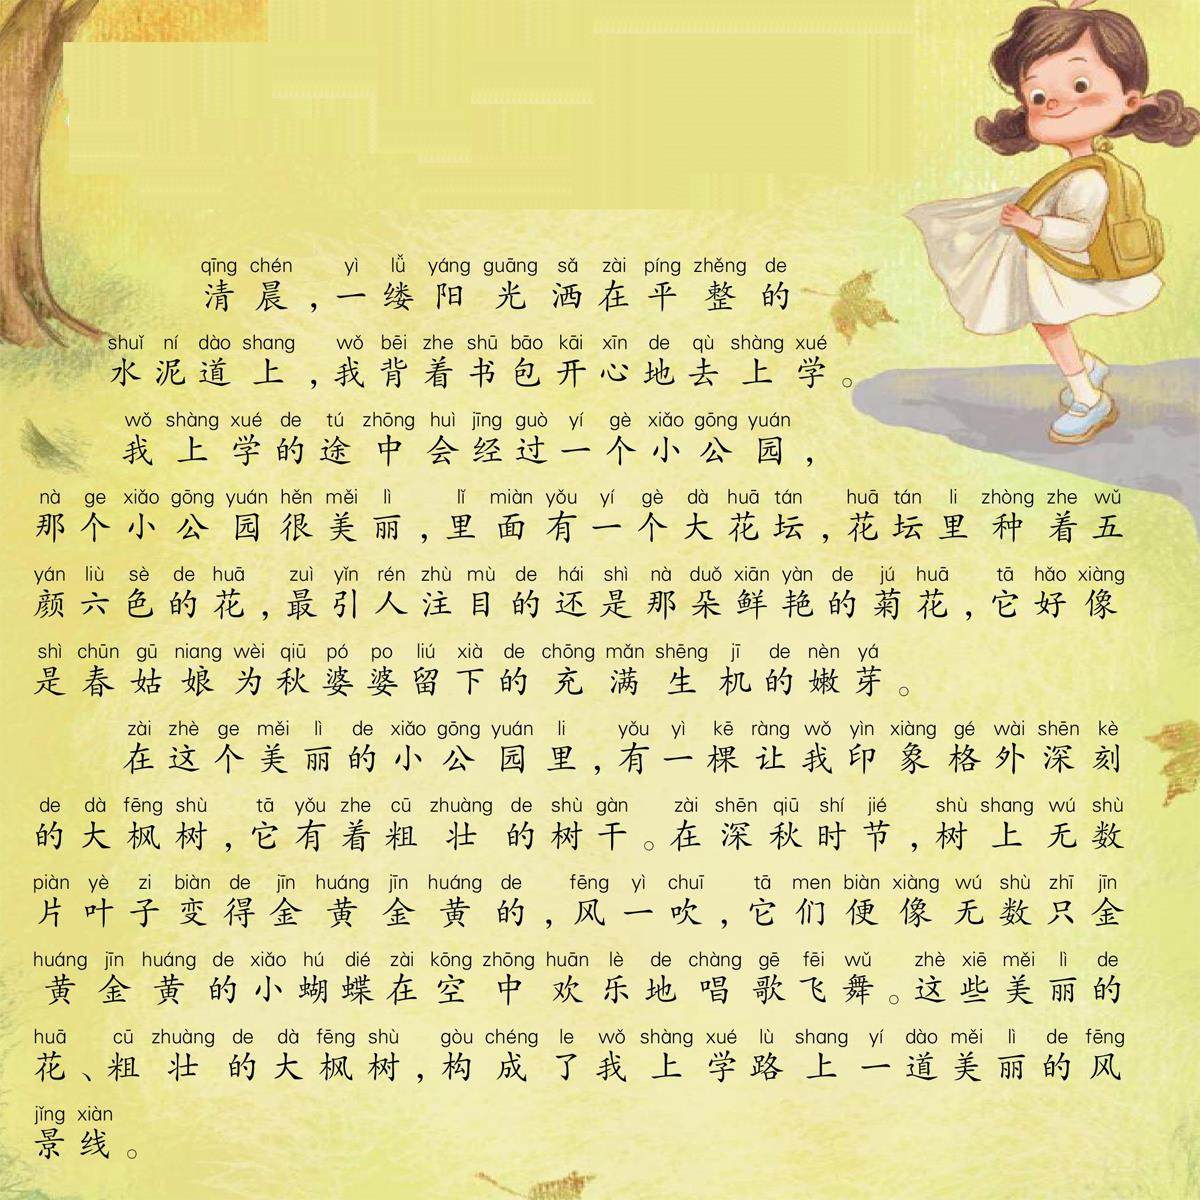 qīng chén yì lǚ yáng guāng sǎ zài píng zhěng de
清晨，一缕阳光洒在平整的
shuǐ ní dào shang wǒ bēi zhe shū bāo kāi xīn de qù shàng xué
水泥道上，我背着书包开心地去上学。
wǒ shàng xué de tú zhōng huì jīng guò yí gè xiǎo gōng yuán
我上学的途中会经过一个小公园，
nà ge xiǎo gōng yuán hěn měi lì lǐ miàn yǒu yí gè dà huā tán huā tán li zhòng zhe wǔ
那个小公园很美丽，里面有一个大花坛，花坛里种着五
yán liù sè de huā zuì yǐn rén zhù mù de hái shì nà duǒ xiān yàn de jú huā tā hǎo xiàng
颜六色的花，最引人注目的还是那朵鲜艳的菊花，它好像
shì chūn gū niang wèi qiū pó po liú xià de chōng mǎn shēng jī de nèn yá
是春姑娘为秋婆婆留下的充满生机的嫩芽。
zài zhè ge měi lì de xiǎo gōng yuán li yǒu yì kē ràng wǒ yìn xiàng gé wài shēn kè
在这个美丽的小公园里，有一棵让我印象格外深刻
de dà fēng shù tā yǒu zhe cū zhuàng de shù gàn zài shēn qiū shí jié shù shang wú shù
的大枫树，它有着粗壮的树干。在深秋时节，树上无数
piàn yè zi biàn de jīn huáng jīn huáng de fēng yì chuī tā men biàn xiàng wú shù zhī jīn
片叶子变得金黄金黄的，风一吹，它们便像无数只金
huáng jīn huáng de xiǎo hú dié zài kōng zhōng huān lè de chàng gē fēi wǔ zhè xiē měi lì de
黄金黄的小蝴蝶在空中欢乐地唱歌飞舞。这些美丽的
huā cū zhuàng de dà fēng shù gòu chéng le wǒ shàng xué lù shang yí dào měi lì de fēng
花、粗壮的大枫树，构成了我上学路上一道美丽的风
jǐng xiàn
景线。